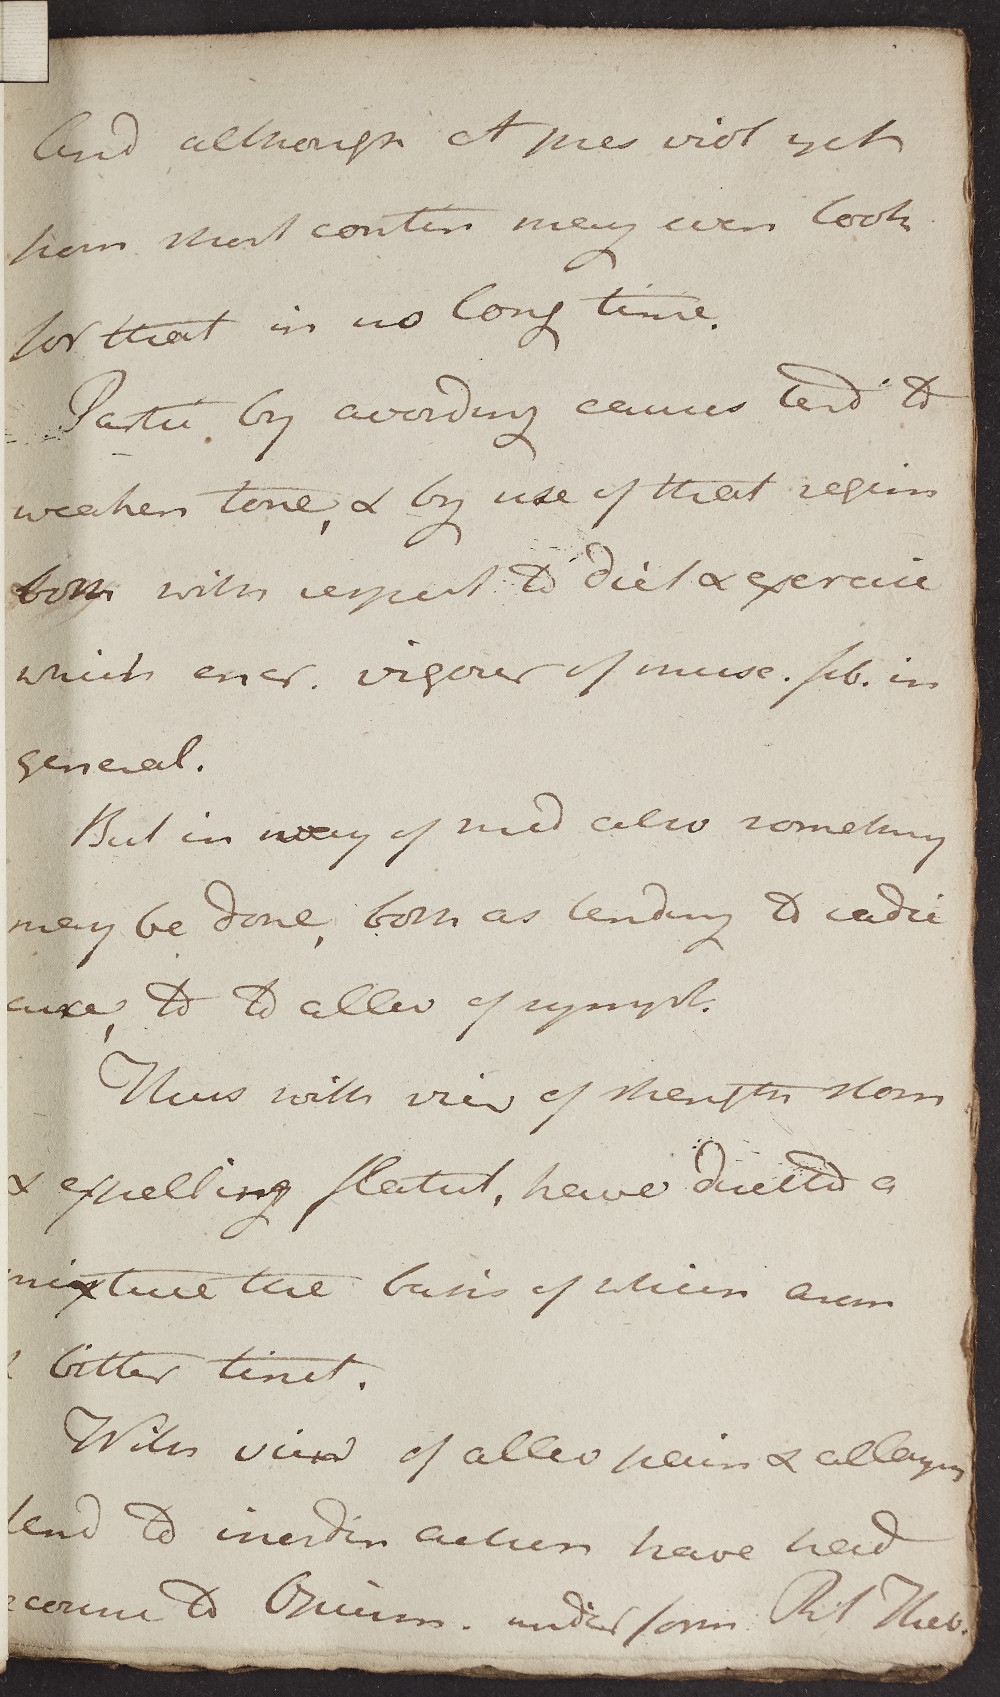 And although at pres viol yet
from short contin may even look
for that in no long time.
Partic. by avoiding causes tend to
weaken tone, & by use of that regim
both with respect to diet & exercise
which encr. vigour of musc. fib. in
general.
But in way of med also something
may be done, both as tending to radic
cure, to to allev of sympt.
Thus with view of strength stom
& expelling flatul, have directed a
mixture the basis of which arom
& bitter tinct.
With view of allev pain & allaying
tend to inordin action have had
recourse to Opium. under form Pil Theb.